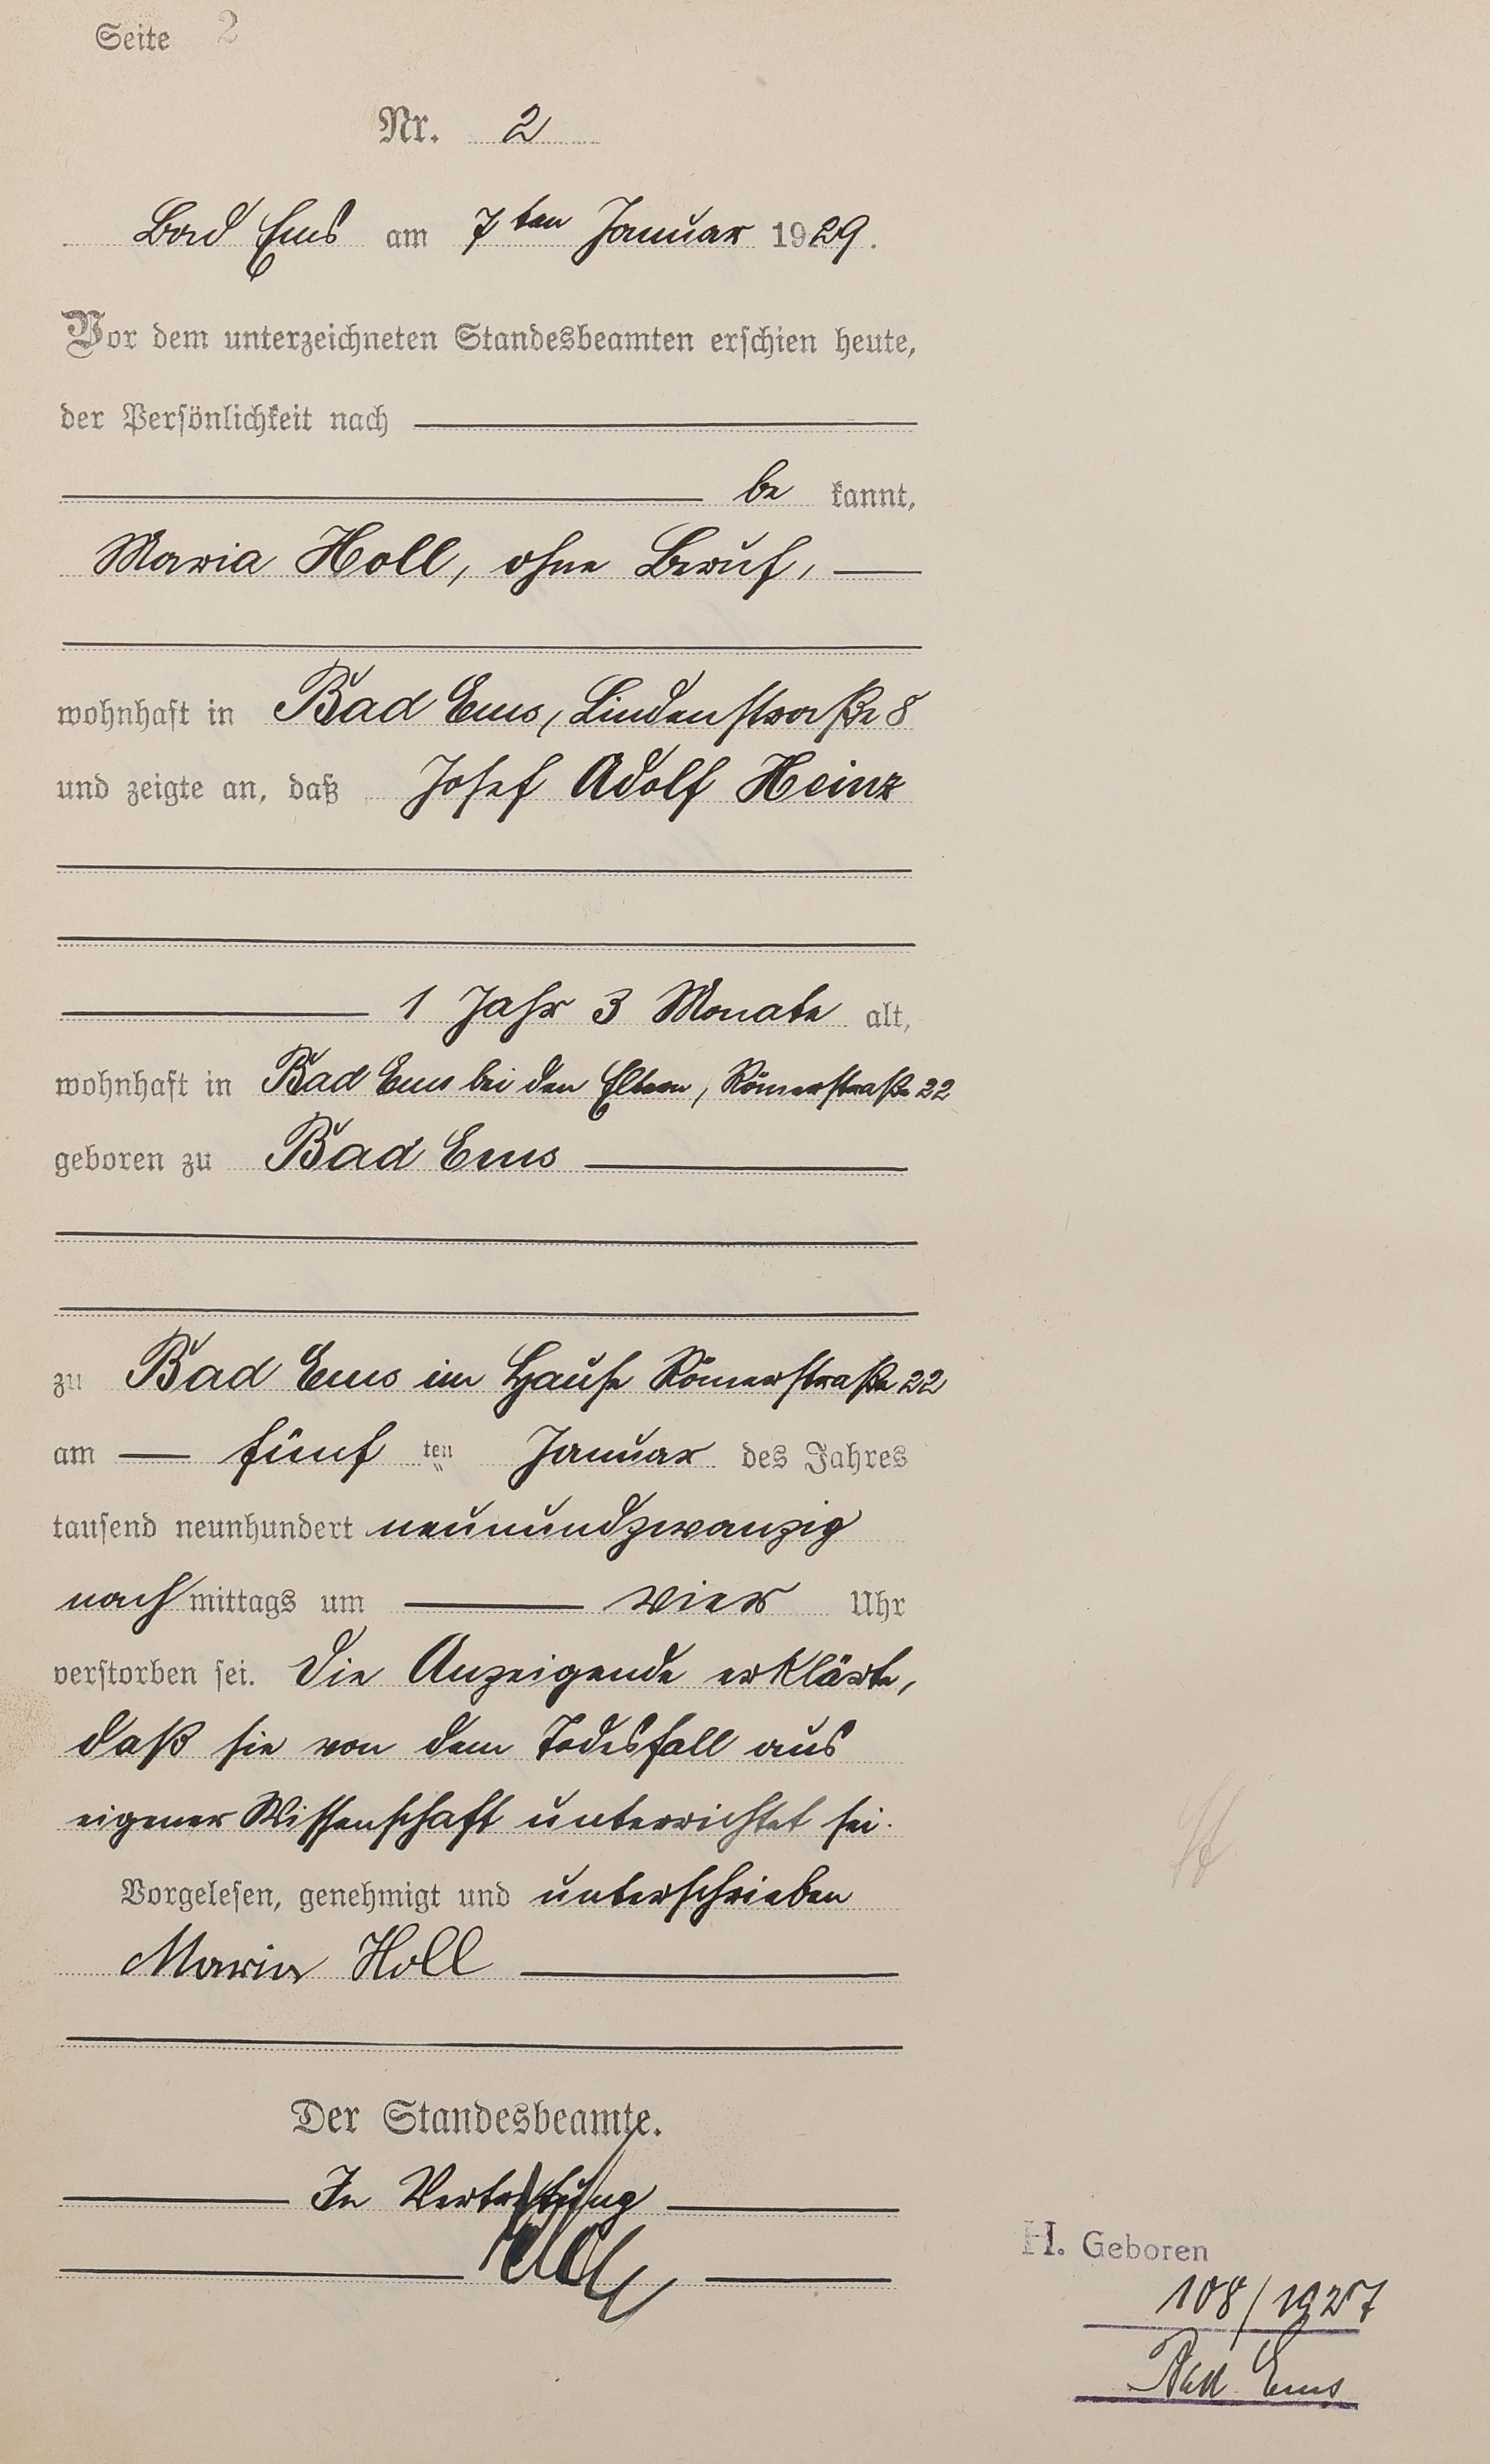 Seite 2
Nr. 2
Bad Ems am 7ten Januar 1929.
Vor dem unterzeichneten Standesbeamten erschien heute,
der Persönlichkeit nach
be kannt,
Maria Holl, ohne Beruf,
wohnhaft in Bad Ems, Lindenstraße 8
und zeigte an, daß Josef Adolf Heinz
1 Jahr 3 Monate alt,
wohnhaft in Bad Ems bei den Eltern, Römerstraße 22
geboren zu Bad Ems
zu Bad Ems im Hause Römerstraße 22
am fünf ten Januar des Jahres
tausend neunhundert neunundzwanzig
nach mittags um vier Uhr
verstorben sei. Die Anzeigende erklärte,
daß sie von dem Todesfall aus
eigener Wissenschaft unterrichtet sei.
Vorgelesen, genehmigt und unterschrieben
Maria Holl
Der Standesbeamte.
In Vertretung
H. Geboren
108/1927
Bad Ems